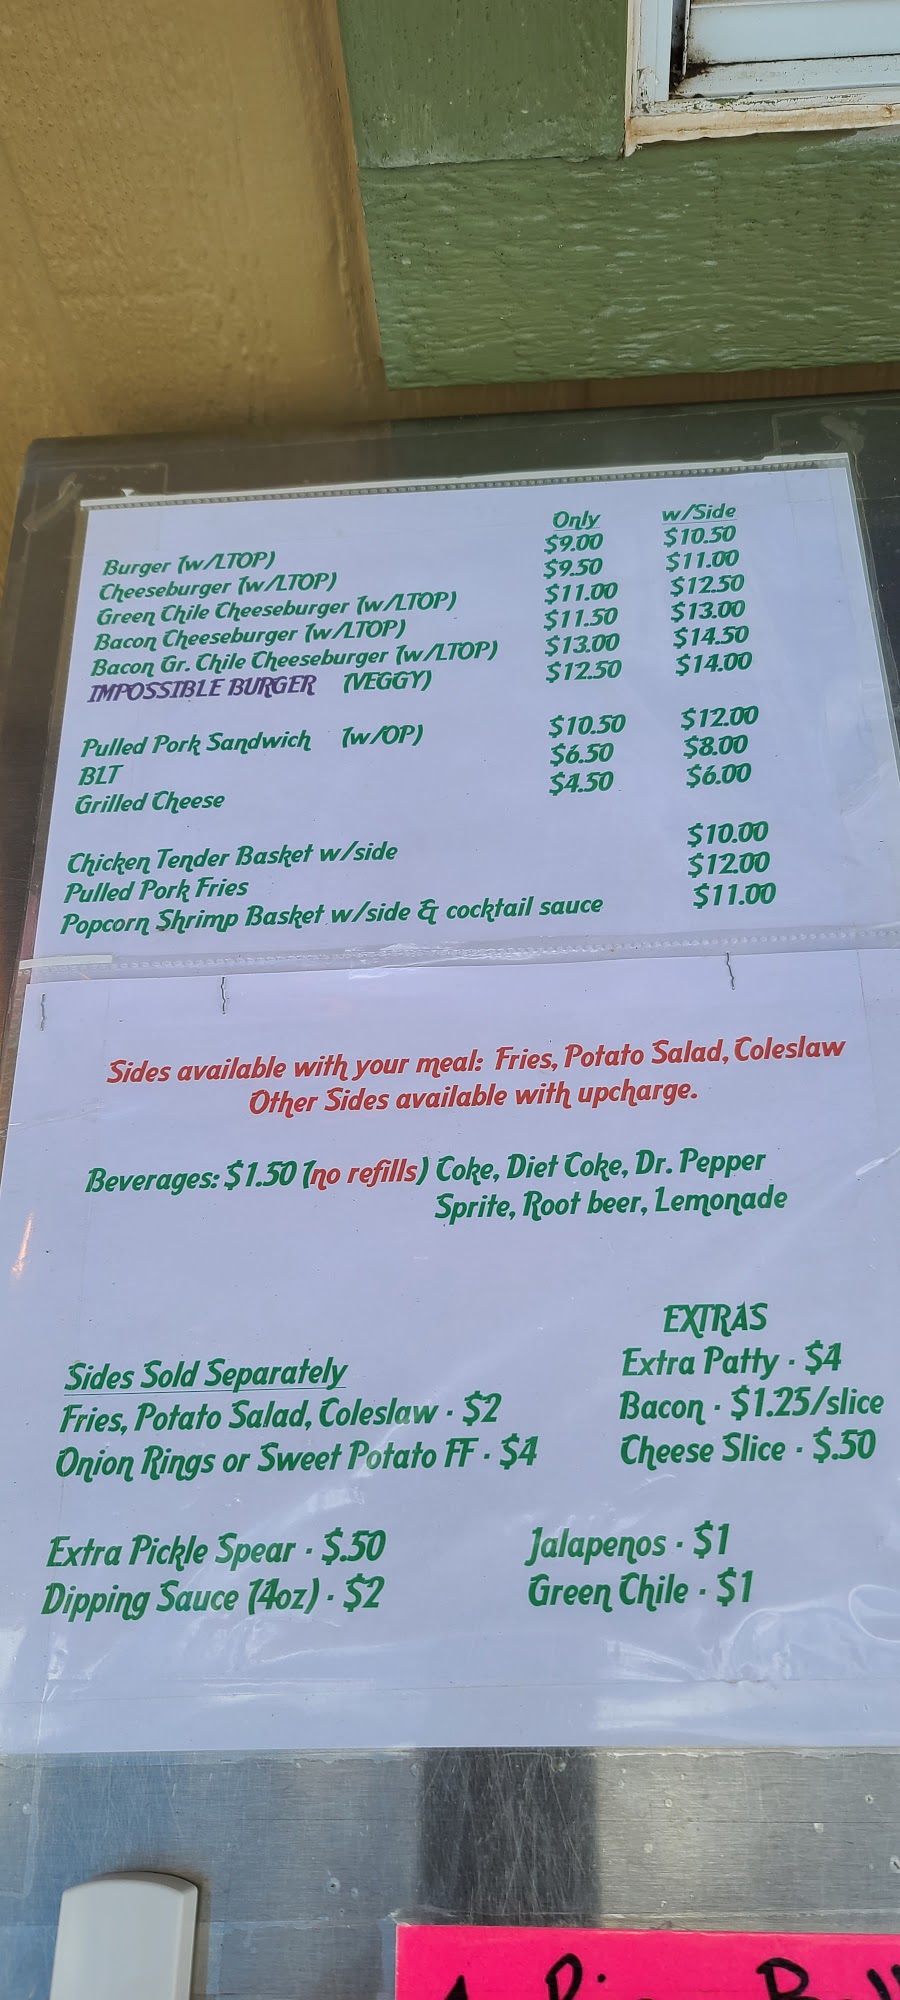 Only w/Side
Burger (w/LTOP) $9.00 $10.50
Cheeseburger (w/LTOP) $9.50 $11.00
Green Chile Cheeseburger (w/LTOP) $11.00 $12.50
Bacon Cheeseburger (w/LTOP) $11.50 $13.00
Bacon Gr. Chile Cheeseburger (w/LTOP) $13.00 $14.50
IMPOSSIBLE BURGER (VEGGY) $12.50 $14.00
Pulled Pork Sandwich (w/OP) $10.50 $12.00
BLT $6.50 $8.00
Grilled Cheese $4.50 $6.00
Chicken Tender Basket w/side $10.00
Pulled Pork Fries $12.00
Popcorn Shrimp Basket w/side & cocktail sauce $11.00
Sides available with your meal: Fries, Potato Salad, Coleslaw
Other Sides available with upcharge.
Beverages: $1.50 (no refills) Coke, Diet Coke, Dr. Pepper
Sprite, Root beer, Lemonade
EXTRAS
Extra Patty - $4
Bacon - $1.25/slice
Cheese Slice - $.50
Sides Sold Separately
Fries, Potato Salad, Coleslaw - $2
Onion Rings or Sweet Potato FF - $4
Extra Pickle Spear - $.50
Dipping Sauce (4oz) - $2
Jalapenos - $1
Green Chile - $1